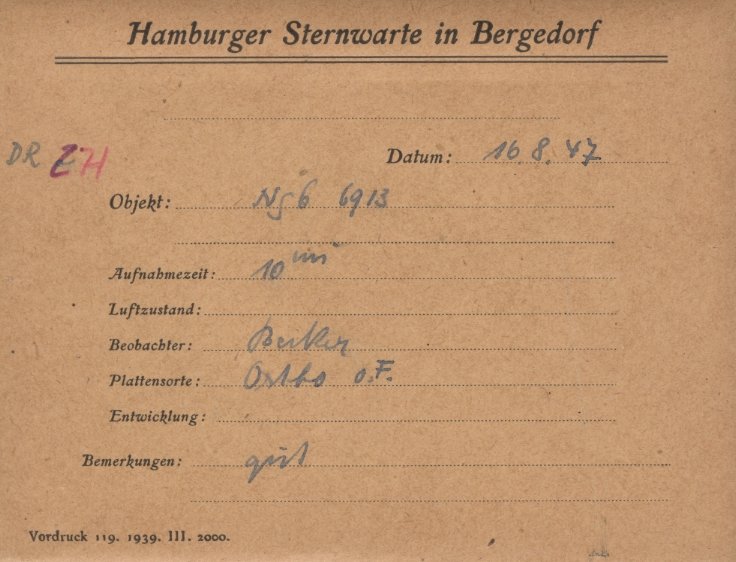 Hamburger Sternwarte in Bergedorf
DR EH
Datum: 16.8.47
Objekt: NgC 6913
Aufnahmezeit: 10 min
Luftzustand:
Beobachter: Becker
Plattensorte: Ortho o.F.
Entwicklung:
Bemerkungen: gut
Vordruck 119. 1939. III. 2000.